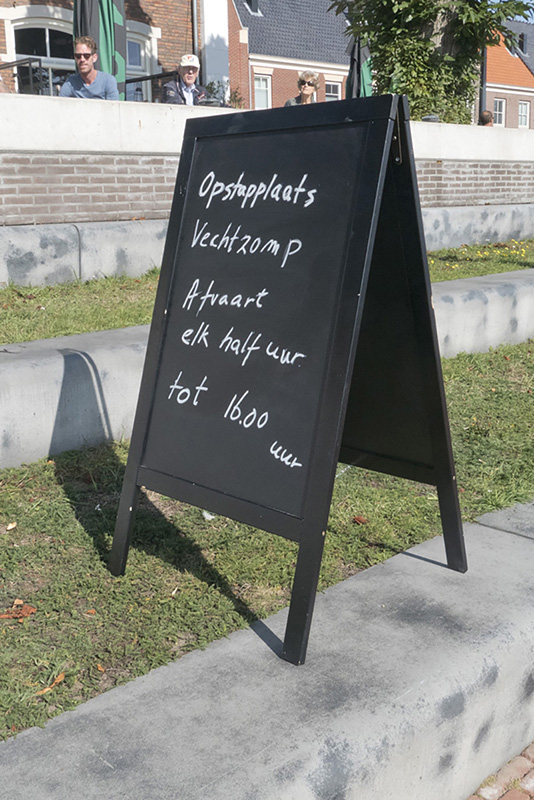 Opstapplaats
Vechtzomp
Afvaart
elk half uur
tot 16.00
uur